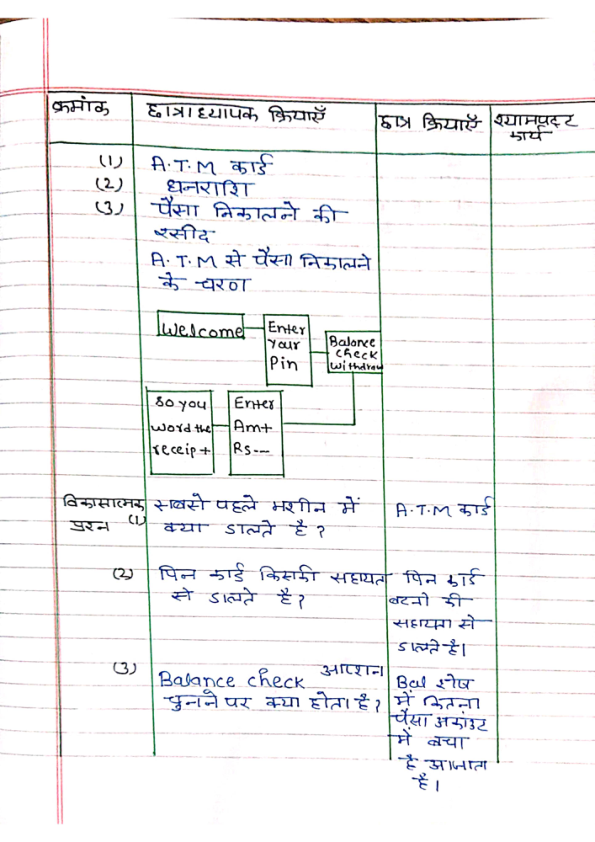 क्रमांक छात्राध्यापक क्रियाएँ छात्र क्रियाएँ श्यामपट्ट
कार्य
(1) A.T.M कार्ड
(2) धनराशि
(3) पैसा निकालने की
रसीद
A.T.M से पैसा निकालने
के चरण
Welcome
Enter
your
Pin
Balance
check
withdraw
Enter
Amt
Rs--
so you
word the
receipt
विकासात्मक सबसे पहले मशीन में A.T.M कार्ड
प्रश्न (1) क्या डालते है?
(2) पिन कार्ड किसकी सहायता पिन कार्ड
से डालते है? बटनो की
सहायता से
डालते है।
(3) Balance check आपशन Bal शेष
चुनने पर क्या होता है? में कितना
पैसा अकांउट
में बचा
है आजाता
है।